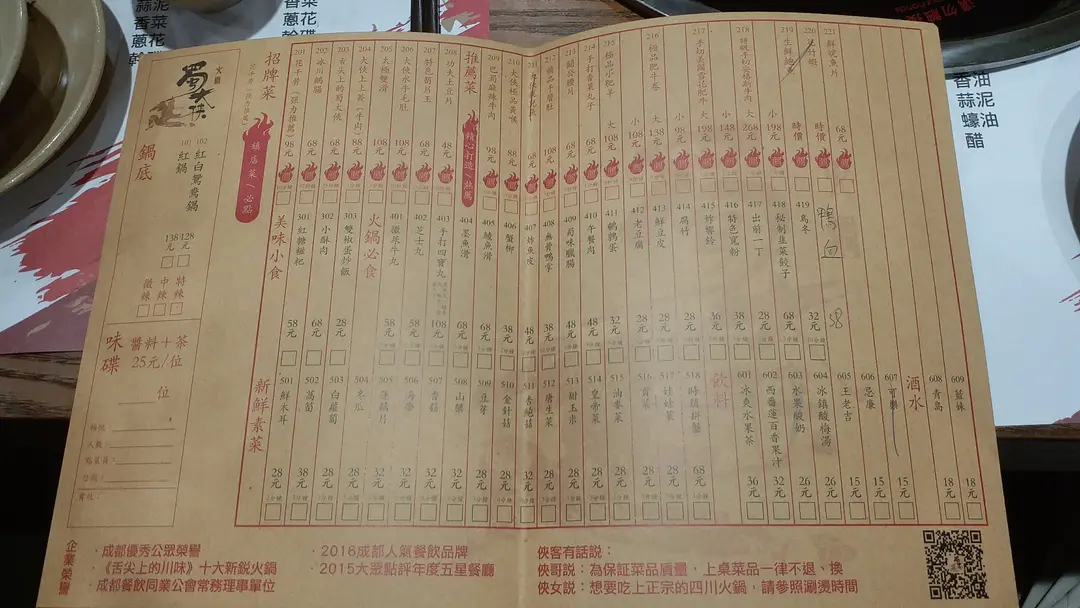 火鍋
蜀大俠
鍋底
101 紅鍋 128元
102 紅白鴛鴦鍋 138元
微辣 中辣 特辣
味碟
醬料+茶
25元/位
位
人數:
招牌菜
花千骨(強力推薦)
鎮店菜/必點
201 花千骨(强力推薦) 98元
202 冰川鵝 68元
203 舌尖上的蜀大俠 68元
204 大俠上上簽(牛肉) 88元
205 大俠極雙滑 108元
206 大俠水牛毛肚 108元
207 特色鵝片王 68元
208 功夫土豆片 48元
推薦菜
精心打造/推薦
209 巴蜀麻辣牛肉 98元
210 大俠極品黃喉 88元
68元
212 極品千層肚 108元
213 68元
214 手打香菜丸子 68元
215 極品小肥羊 大 108元
小 68元
216 極品肥牛卷 大 138元
小 98元
217 手切美國雪花肥牛 大 198元
小 148元
218 大 268元
小 198元
219 生鮮鮑魚 時價
220 竹蝦 時價
221 鮮脘魚片 68元
美味小食
301 紅糖糍粑 58元
302 小酥肉 68元
303 雙椒蛋炒飯 28元
火鍋必食
401 撒尿牛丸 58元
402 芝士丸 58元
403 手打四寶丸 108元
404 墨魚滑 68元
405 鯪魚滑 68元
406 蟹柳 38元
407 炸魚皮 48元
408 無骨鴨掌 38元
409 蜀味臘腸 48元
410 午餐肉 48元
411 鵪鶉蛋 32元
412 老豆腐 28元
413 鮮豆皮 28元
414 腐竹 28元
415 炸響鈴 36元
416 特色寬粉 38元
417 出前一丁 28元
418 秘制韭菜餃子 68元
419 烏冬 32元
鴨血 38
新鮮素菜
501 鮮木耳 28元
502 萵筍 38元
503 白蘿蔔 28元
504 冬瓜 28元
505 蓮藕片 32元
506 海帶 32元
507 香菇 32元
508 山藥 32元
509 豆芽 28元
510 金針菇 28元
511 杏鮑菇 32元
512 唐生菜 28元
513 甜玉米 28元
514 皇帝菜 28元
515 油麥菜 28元
516 黃芽 28元
517 娃娃菜 28元
518 時蔬拼盤 68元
飲料
601 冰爽水果茶 36元
602 西番蓮百香果汁 32元
603 水果酸奶 26元
604 冰鎮酸梅湯 26元
605 王老吉 15元
606 忌廉 15元
607 可樂 15元
酒水
608 青島 18元
609 藍妹 18元
企業榮譽
·成都優秀公眾榮譽
·《舌尖上的川味》十大新銳火鍋
·成都餐飲同業公會常務理事單位
·2016成都人氣餐飲品牌
·2015大眾點評年度五星餐廳
俠客有話説：
俠哥説：為保証菜品質量，上桌菜品一律不退、換
俠女説：想要吃上正宗的四川火鍋，請參照涮燙時間